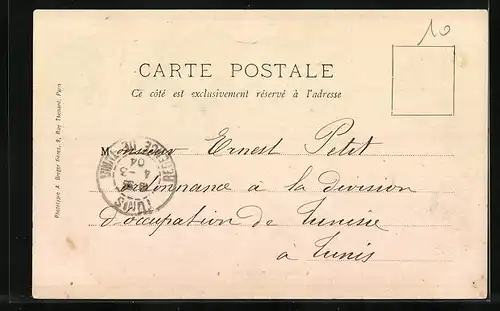 10
CARTE POSTALE
Ce côté est exclusivement réservé à l'adresse
Monsieur Ernest Petit
ordonnance à la division
d'occupation de Tunisie
à Tunis
TUNIS
4 - 3
04
Phototypie A. Berger Frères, 9, Rue Thénard, Paris